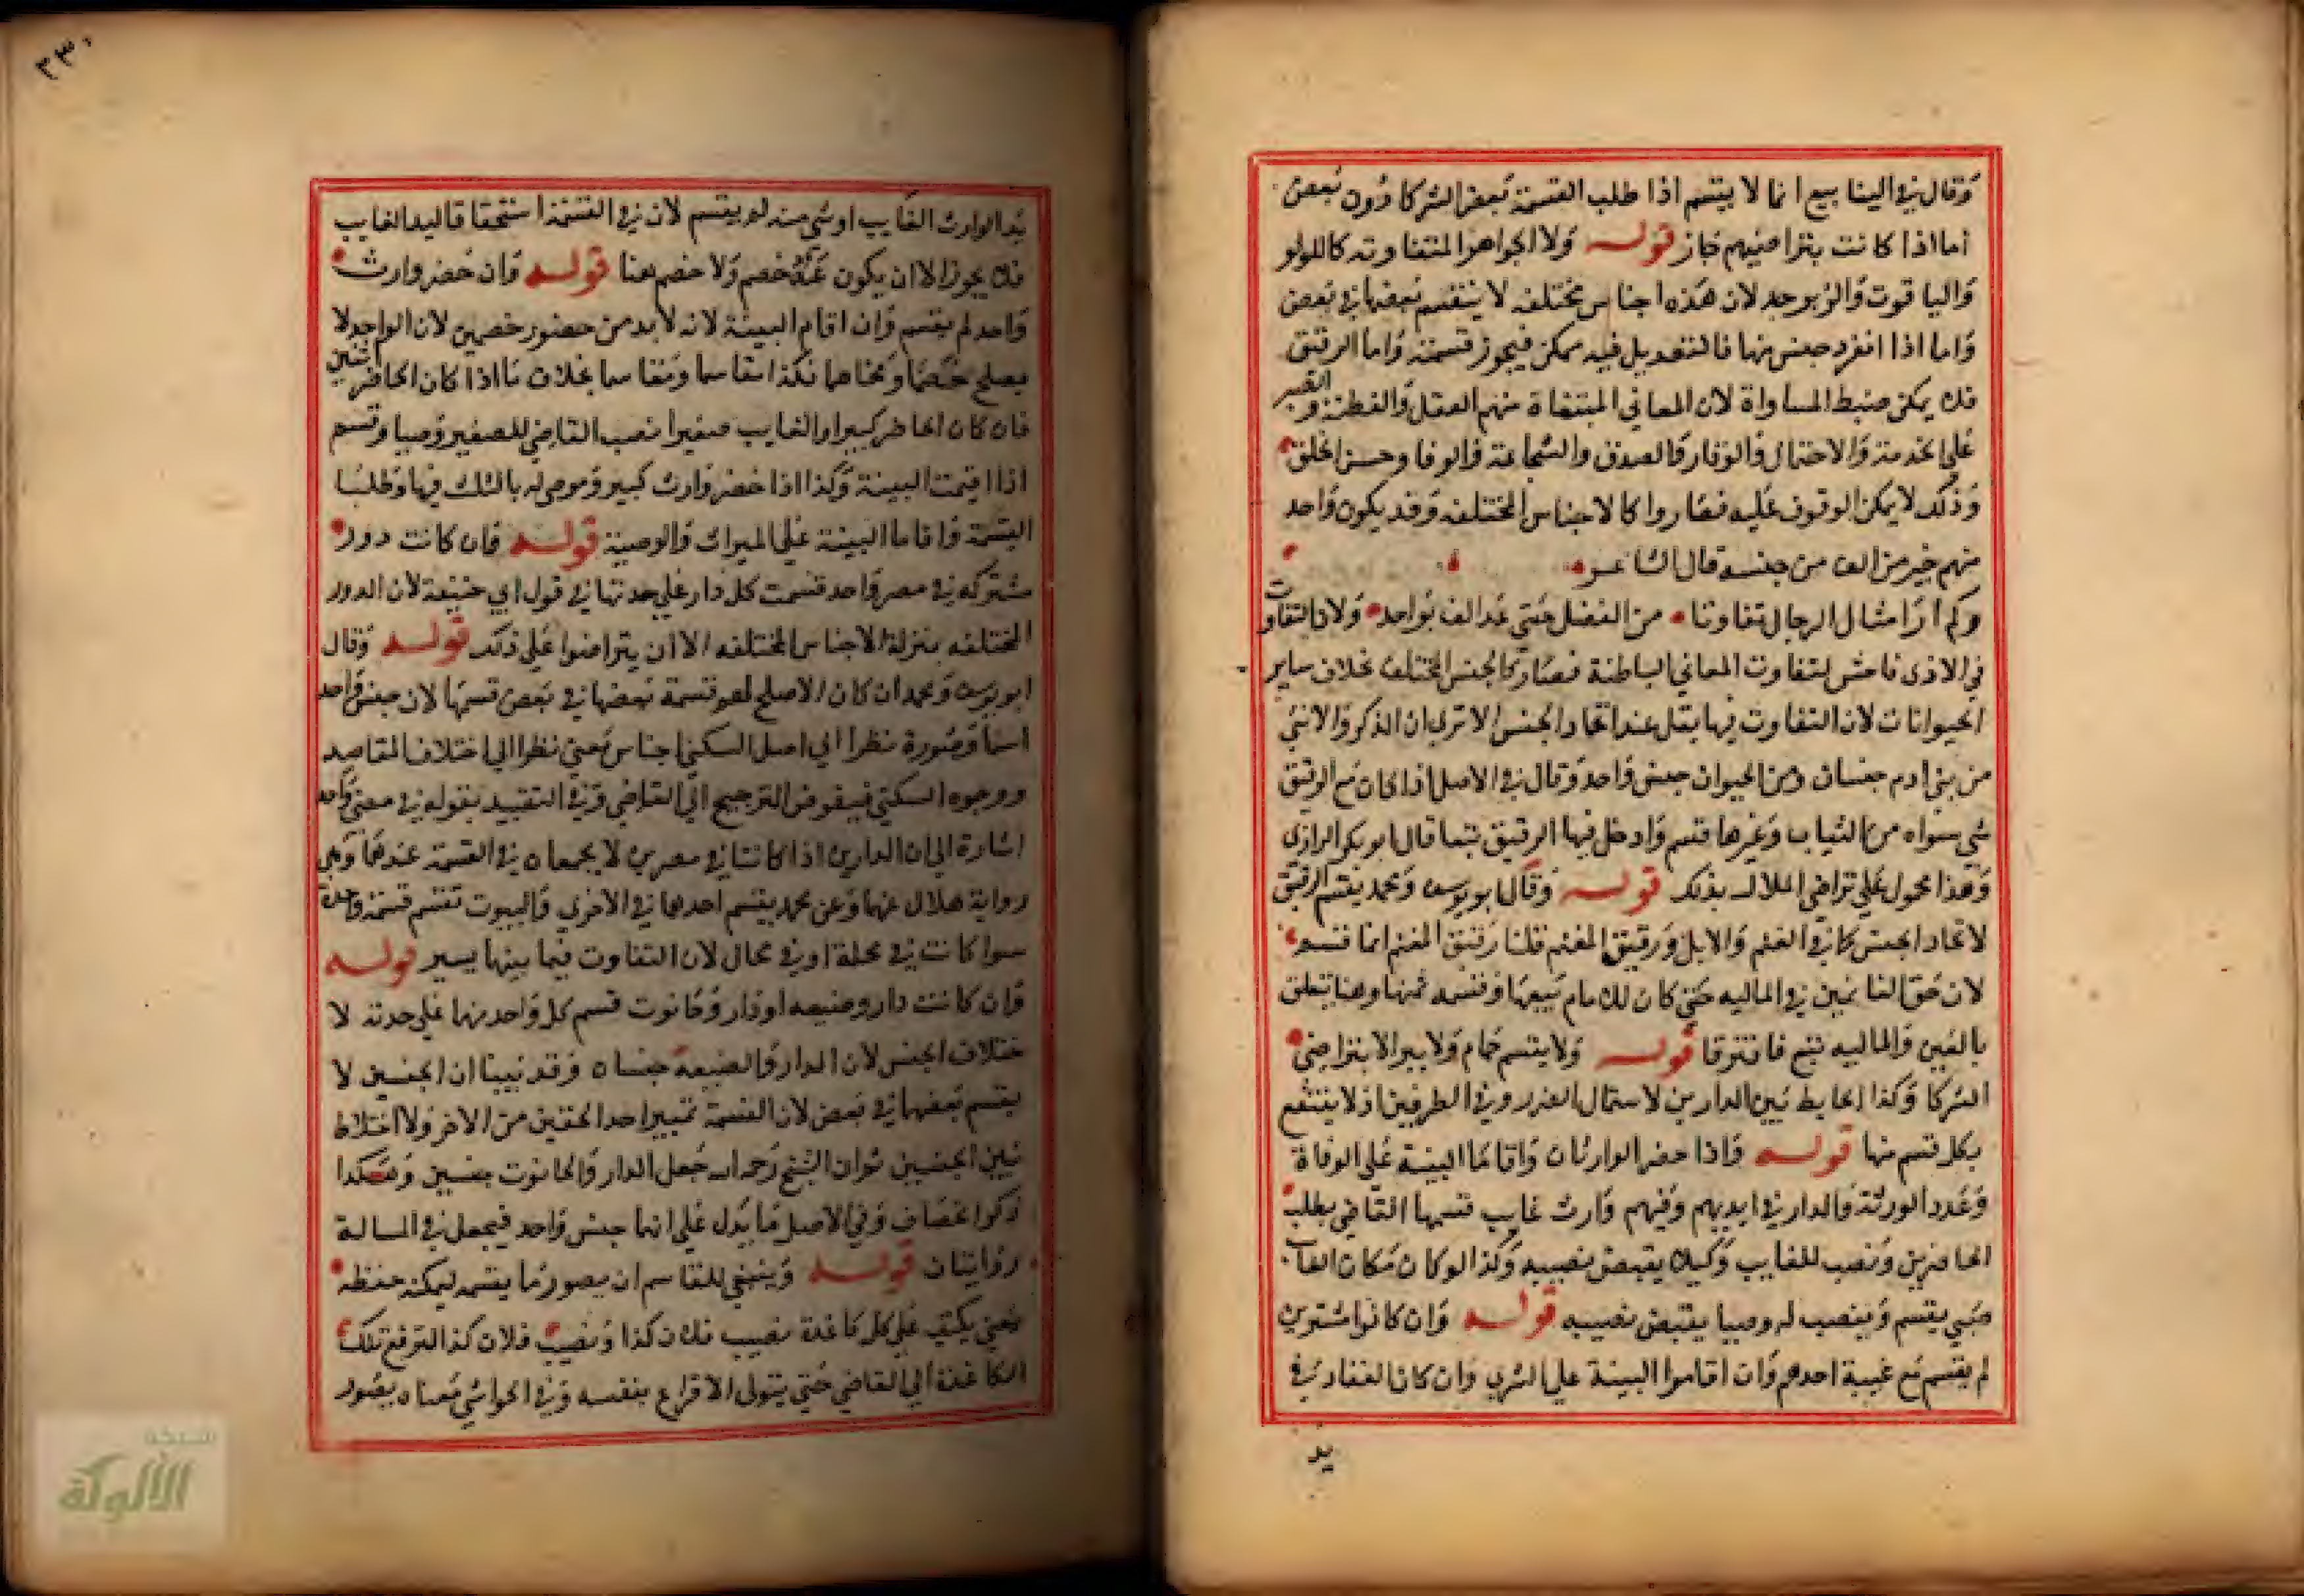 وقال في الينابيع انما لا يقسم اذا طلب القسمة بعض الشركا دون بعض
اما اذا كانت بتراضيهم جاز قوله ولا الجواهر المتفاوته كاللولو
واليا قوت والزبرجد لان هذه اجناس مختلفه لا ينقسم بعضها في بعض
واما اذا انفرد جنس منها فالتعديل فيه ممكن فيجوز قسمته واما الرقيق
فلا يمكن ضبط المساواة لان المعاني المبتغاة منهم العقل والفطنة والصبر
على الخدمة والاحتمال والوقار والصدق والشجاعة والوفا وحسن الخلق
وذلك لا يمكن الوقوف عليه فصاروا كالاجناس المختلفه وقد يكون واحد
منهم خير من الف من جنسه قال الشاعر
وكم ار امثال الرجال تفاوتا من الفضل حتى عد الف بواحد ولان التفاوت
في الادمي فاحش لتفاوت المعاني الباطنة فصار كالجنس المختلف بخلاف ساير
الحيوانات لان التفاوت فيها يقل عند اتحاد الجنس الا ترى ان الذكر والانثى
من بني ادم جنسان ومن الحيوان جنس واحد وقال في الاصل اذا كان مع الرقيق
شي سواه من الثياب وغيرها قسم وادخل فيها الرقيق تبعا قال ابو بكر الرازي
وهذا محمول على تراضي الملاك بذلك قوله وقال ابو يوسف ومحمد يقسم الرقيق
لاتحاد الجنس كما في الغنم والابل ورقيق المغنم قلنا رقيق المغنم انما قسم
لان حق الغانمين في الماليه حتى كان للامام بيعها وقسمه ثمنها وهنا يتعلق
بالعين والماليه جميع فافترقا قوله ولا يقسم حمام ولا بير الا بتراضي
الشركا وكذا الحايط بين الدارين لاشتمال الضرر وفي الطرفين اذ لا ينتفع
بكل قسم منها قوله واذا حضر الوارثان واقاما البينة على الوفاة
وعدد الورثة والدار في ايديهم وفيهم وارث غايب قسمها القاضي بطلب
الحاضرين ونصب للغايب وكيلا يقبض نصيبه وكذا لو كان مكان الغا
صبي يقسم وينصب له وصيا يقبض نصيبه قوله وان كانوا مشترين
لم يقسم مع غيبة احدهم وان اقاموا البينة على الشرى وان كان العقار في
يد
٣٣٠
يد الوارث الغايب او شي منه لم يقسم لان في القسمة استحقاقا ليد الغايب
فلا يجوز الا ان يكون عنه خصم ولا خصم هنا قوله وان حضر وارث
واحد لم يقسم وان اقام البينة لانه لا بد من حضور خصمين لان الواحد لا
يصلح خصما ومخاصما وكذا مقاسما ومقاسما بخلاف ما اذا كان الحاضر اثنين
فان كان الحاضر كبيرا والغايب صغيرا نصب القاضي للصغير وصيا وقسم
اذا اقيمت البينة وكذا اذا حضر وارث كبير وموصى له بالثلث فيها وطلبا
القسمة واقاما البينة على الميراث والوصية قوله وان كانت دور
مشتركه في مصر واحد قسمت كل دار على حدتها في قول ابي حنيفة لان الدور
المختلفه بمنزلة الاجناس المختلفه الا ان يتراضوا على ذلك قوله وقال
ابو يوسف ومحمد ان كان الاصلح لهم قسمة بعضها في بعض قسمها لان جنس واحد
اسما وصورة نظرا الى اصل السكنى اجناس معنى نظرا الى اختلاف المقاصد
ووجوه السكنى فيفوض الترجيح الى القاضي وفي التقييد بقوله في مصر واحد
اشارة الى ان الدارين اذا كانتا في مصرين لا يجمعان في القسمة عندهما وهي
رواية هلال عنهما وعن محمد يقسم احدهما في الاخرى والبيوت تقسم قسمة واحدة
سوا كانت في محلة او في محال لان التفاوت فيما بينها يسير قوله
وان كانت دار وضيعه او دار وحانوت قسم كل واحد منها على حدته لا
ختلاف الجنس لان الدار والضيعة جنسان وقد بينا ان الجنسين لا
يقسم بعضها في بعض لان القسمة تمييز احد الحقين من الاخر ولا اختلاط
بين الجنسين ثم ان الشيخ رحمه الله جعل الدار والحانوت جنسين وهكذا
ذكر الخصاف وفي الاصل ما يدل على انهما جنس واحد فيجعل في المسالة
روايتان قوله وينبغي للقاسم ان يصور ما يقسمه ليمكنه حفظه
يعني يكتب على كل كاغدة نصيب فلان كذا ونصيب فلان كذا لترفع تلك
الكاغدة الى القاضي حتى يتولى الاقراع بنفسه وفي الحواشي معناه يصور
شبكة
الألوكة